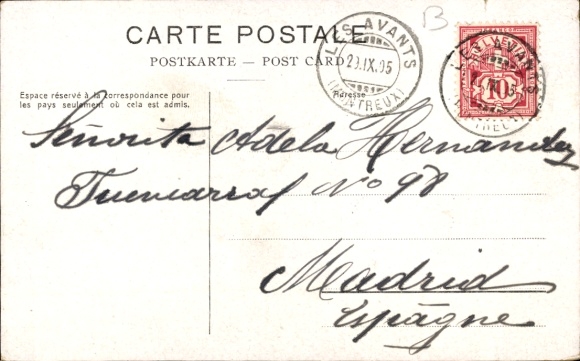 B
CARTE POSTALE
POSTKARTE — POST CARD
LES AVANTS
29.IX.05
(MONTREUX)
10
Espace réservé à la correspondance pour
les pays seulement où cela est admis.
Adresse
Señorita Adela Hernandez
Fuencarral Nº 98
Madrid
Espagne